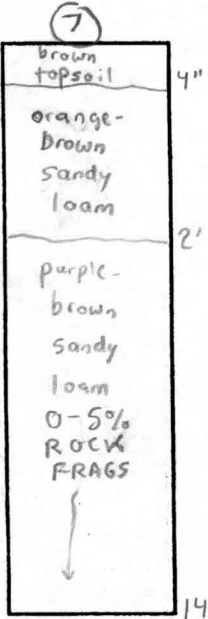 7
brown
topsoil
4"
orange-
brown
sandy
loam
2'
purple-
brown
sandy
loam
0-5%
ROCK
FRAGS
14